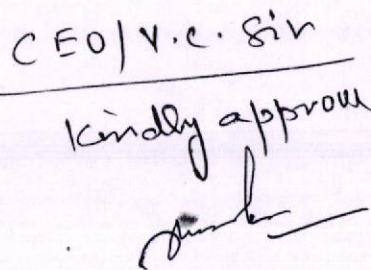 CEO/V.C. Sir
Kindly approve